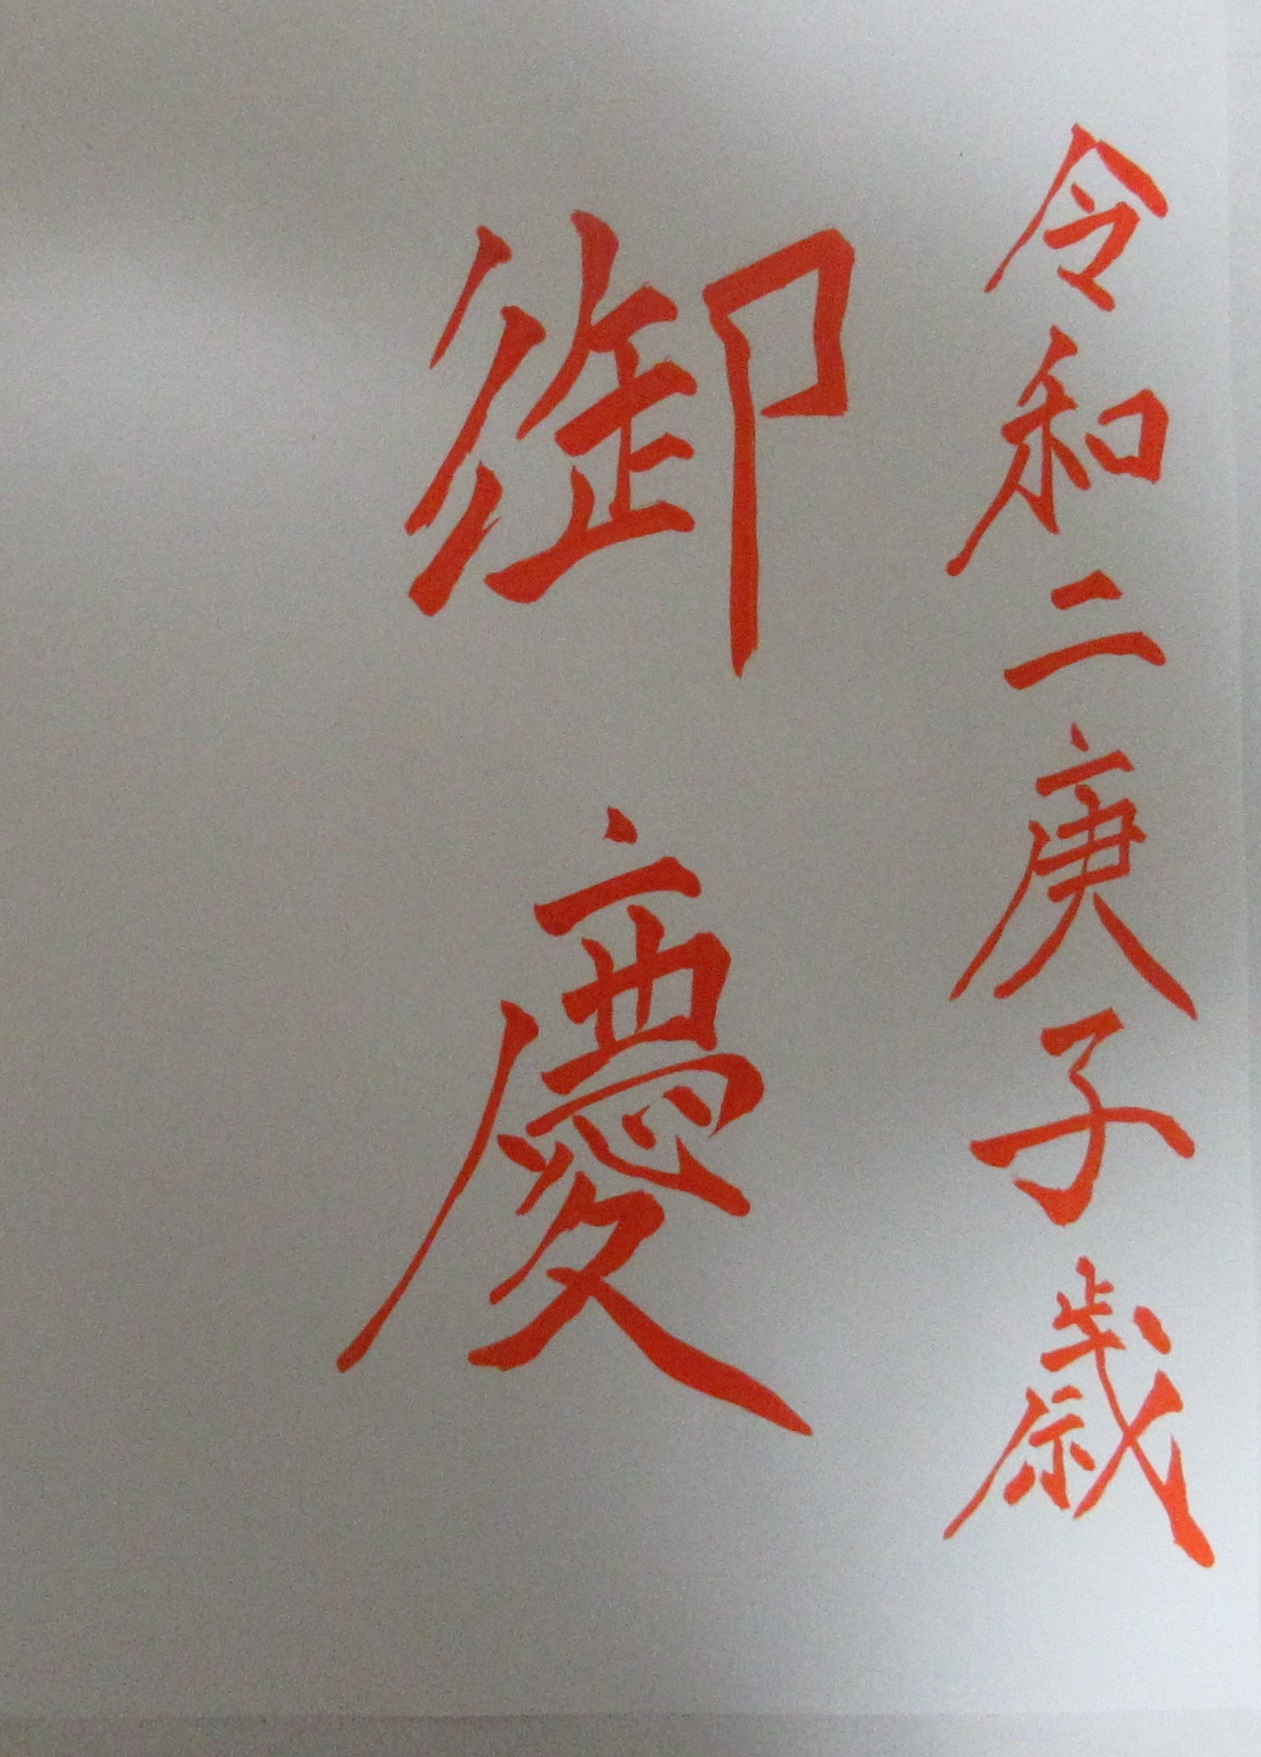 令和二庚子歳
御慶